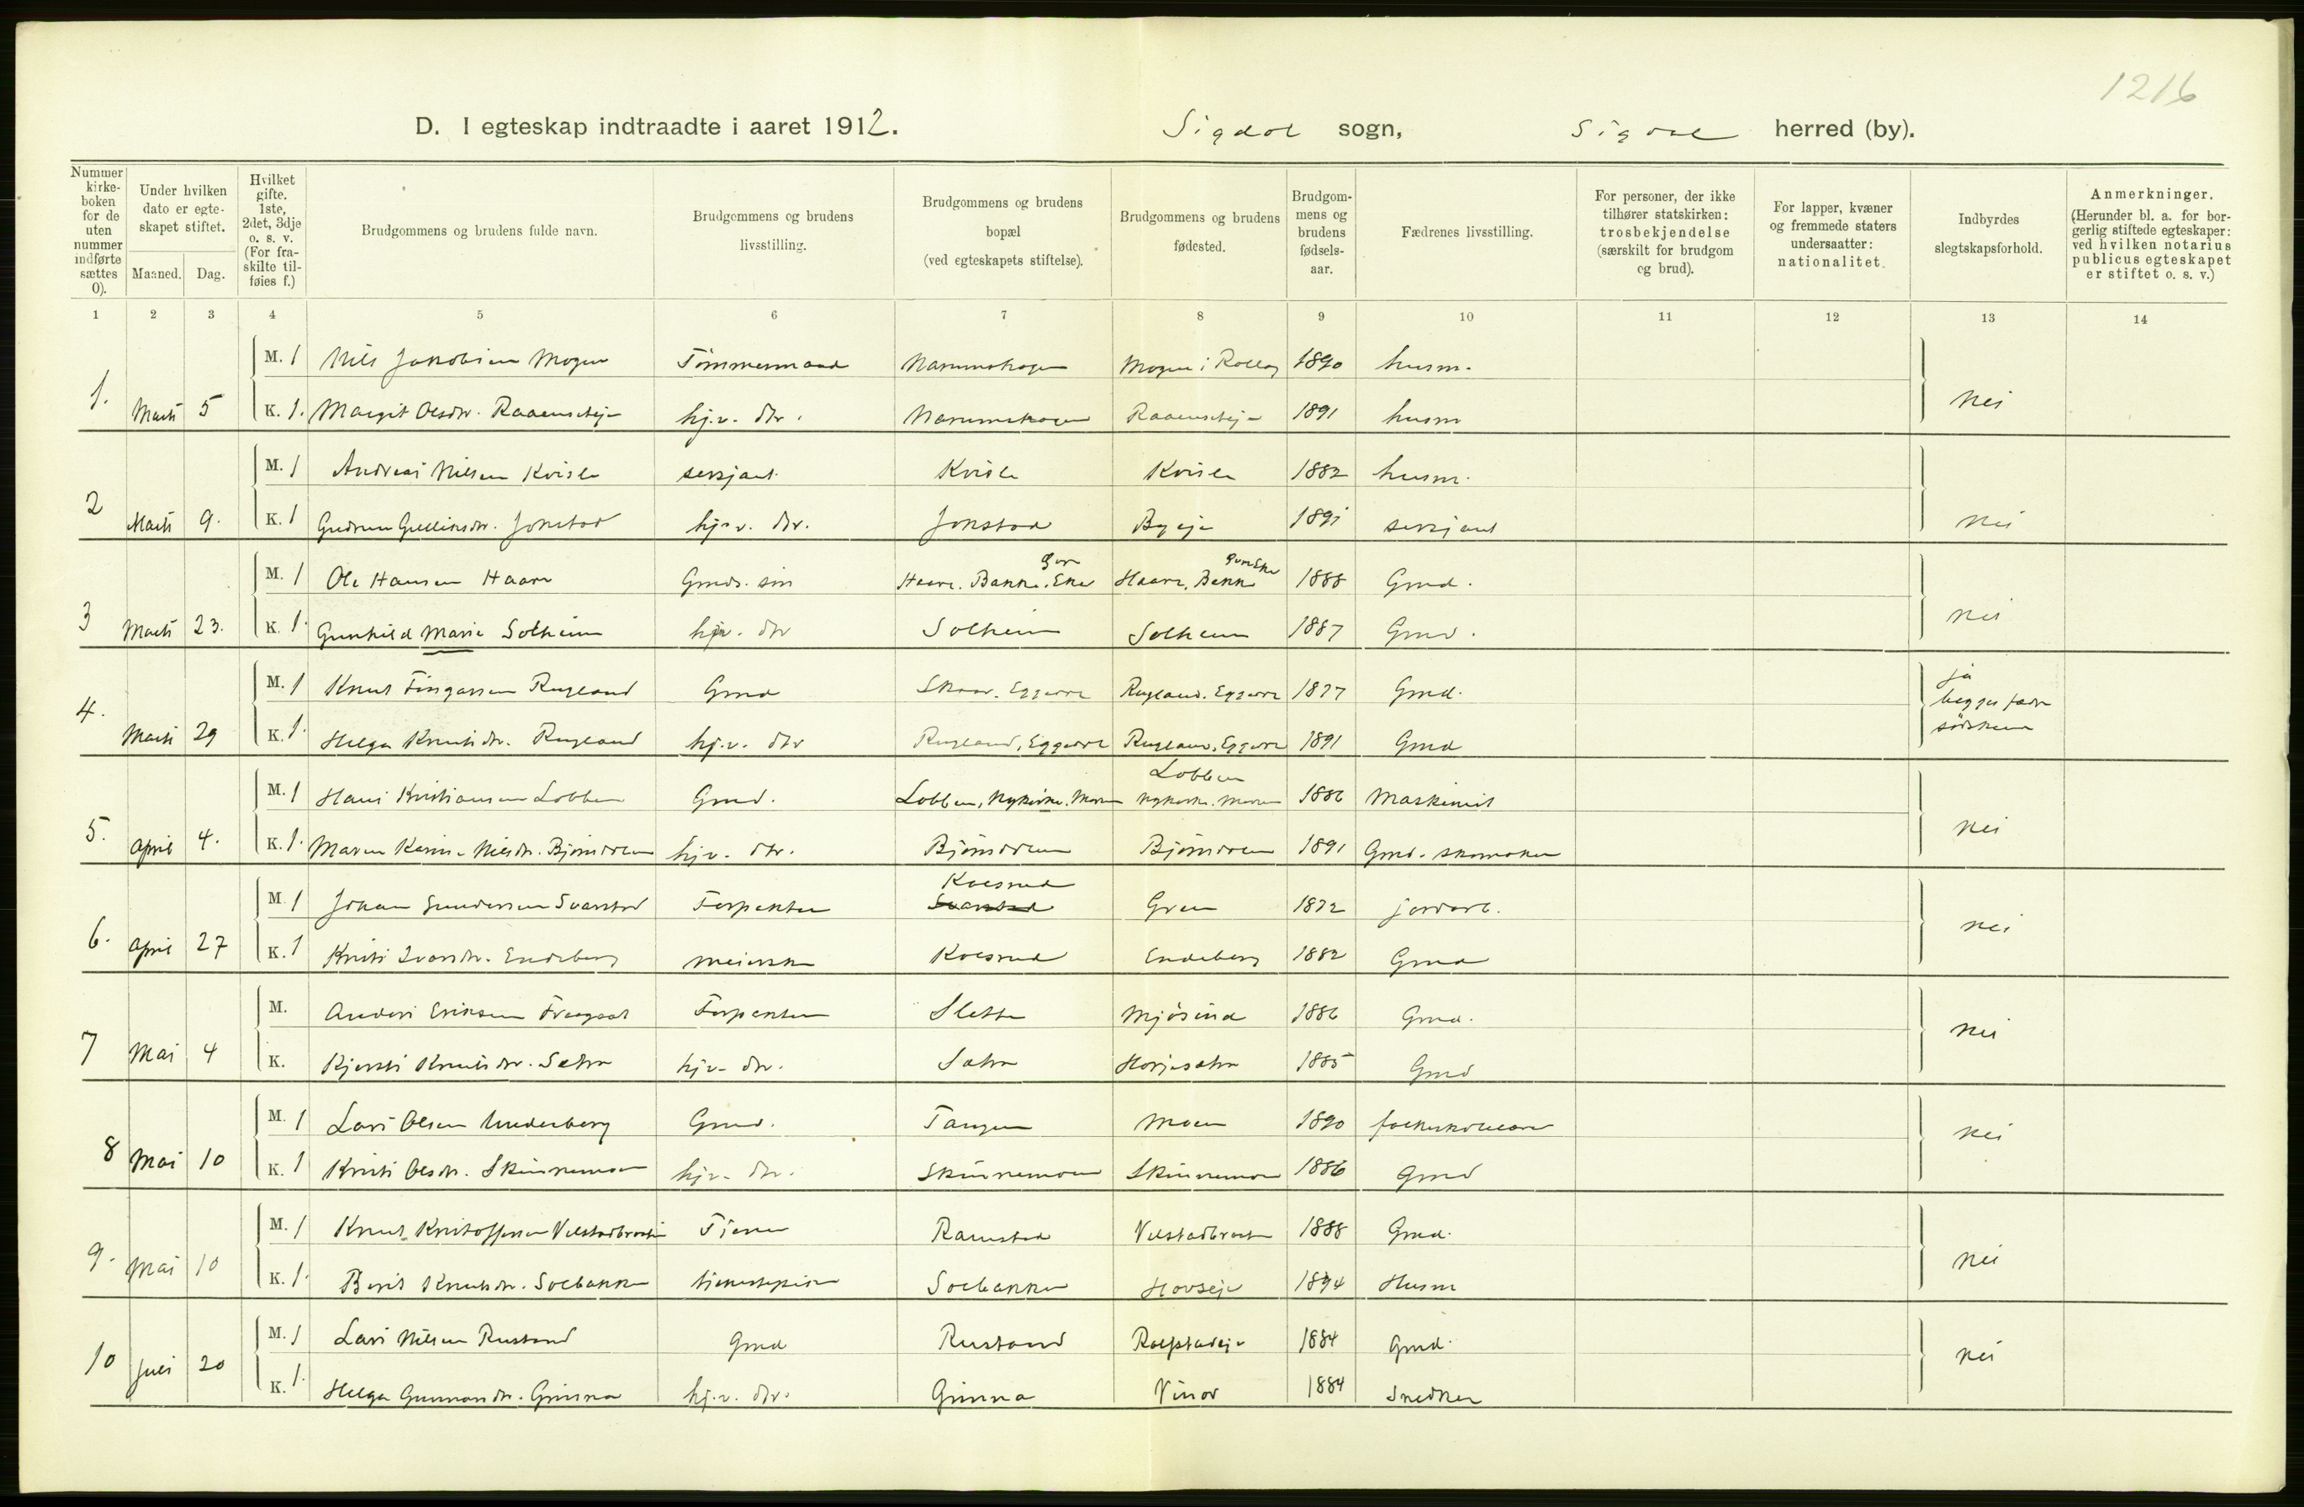 1216
D. I egteskap indtraadte i aaret 1912. Sigdal sogn, Sigdal herred (by).
Nummer kirkeboken for de uten nummer indførte sættes 0).
Under hvilken dato er egteskapet stiftet.
Maaned. Dag.
Hvilket gifte. 1ste, 2det, 3dje o. s. v. (For fraskilte tilføies f.)
Brudgommens og brudens fulde navn.
Brudgommens og brudens livsstilling.
Brudgommens og brudens bopæl (ved egteskapets stiftelse).
Brudgommens og brudens fødested.
Brudgommens og brudens fødselsaar.
Fædrenes livsstilling.
For personer, der ikke tilhører statskirken: trosbekjendelse (særskilt for brudgom og brud).
For lapper, kvæner og fremmede staters undersaatter: nationalitet.
Indbyrdes slegtskapsforhold.
Anmerkninger. (Herunder bl. a. for borgerlig stiftede egteskaper: ved hvilken notarius publicus egteskapet er stiftet o. s. v.)
1 2 3 4 5 6 7 8 9 10 11 12 13 14
M. 1 Nils Jakobsen Mogen Tömmermand Narumskogen Mogen i Rollag 1890 husm.
1. Marts 5 K. 1. Margit Olsdtr. Raaenseje hj.v. dtr. Narumskogen Raaenseje 1891 husm nei
M. 1 Andreas Nilsen Kvisle sersjant Kvisle Kvisle 1882 husm.
2 Marts 9. K. 1 Gudrun Gulliksdtr. Jonstad hj.v. dtr. Jonstad Byeje 1891 sersjant nei
M. 1 Ole Hansen Haare Gmds. sön Haare. Bakke. Eker Haare, Bakke Eker 1888 Gmd.
3 Marts 23. K. 1. Gunhild Marie Solheim hjv. dtr Solheim Solheim 1887 Gmd. nei
M. 1 Knut Rugland Gmd Skaar. Eggedal Rugland. Eggedal 1877 Gmd. ja
begges
4. Marts 29 K. 1. Helga Knutsdtr. Rugland hj.v. dtr Rugland, Eggedal Rugland, Eggedal 1891 Gmd södsken
Lobben
M. 1 Hans Kristiansen Lobben Gmd. Lobben, Nykirke. Modum Nykirke. Modum 1886 Maskinist
5. April 4. K. 1. Maren Karine Nilsdr. Björndalen hjv. dtr. Björndalen Björndalen 1891 Gmd. skomaker nei
Kolsrud
M. 1 Johan Gundersen Svarstad Forpakter Svarstad Gren 1872 jordarb.
6. April 27 K. 1 Kristi Ivarsdtr. Endeberg meierske Kolsrud Endeberg 1882 Gmd nei
M. Anders Eriksen Fraagaat Forpakter Slette Mjösund 1886 Gmd.
7 Mai 4 K. Kjersti Knutsdtr. Sætra hjv. dtr. Sætra Horjesætra 1885 Gmd nei
M. 1 Lars Olsen Underberg Gmd. Tangen Moen 1890 folkeskolelærer
8 Mai 10 K. 1 Kristi Olsdtr. Skinnemoen hjv. dtr. Skinnemoen Skinnemoen 1886 Gmd nei
M. 1 Knut Kristoffersen Velstadbraaten Tjener Ramstad Velstadbraaten 1888 Gmd.
9. Mai 10 K. 1. Berit Knutsdtr. Solbakken tjenestepike Solbakken Hovseje 1894 Husm nei
M. 1 Lars Nilsen Rustand Gmd Rustand Rolfstadeje 1884 Gmd.
10 Juli 20 K. 1. Helga Gunnarsdtr. Grimsa hj.v. dtr. Grimsa Vinor 1884 Snedker nei